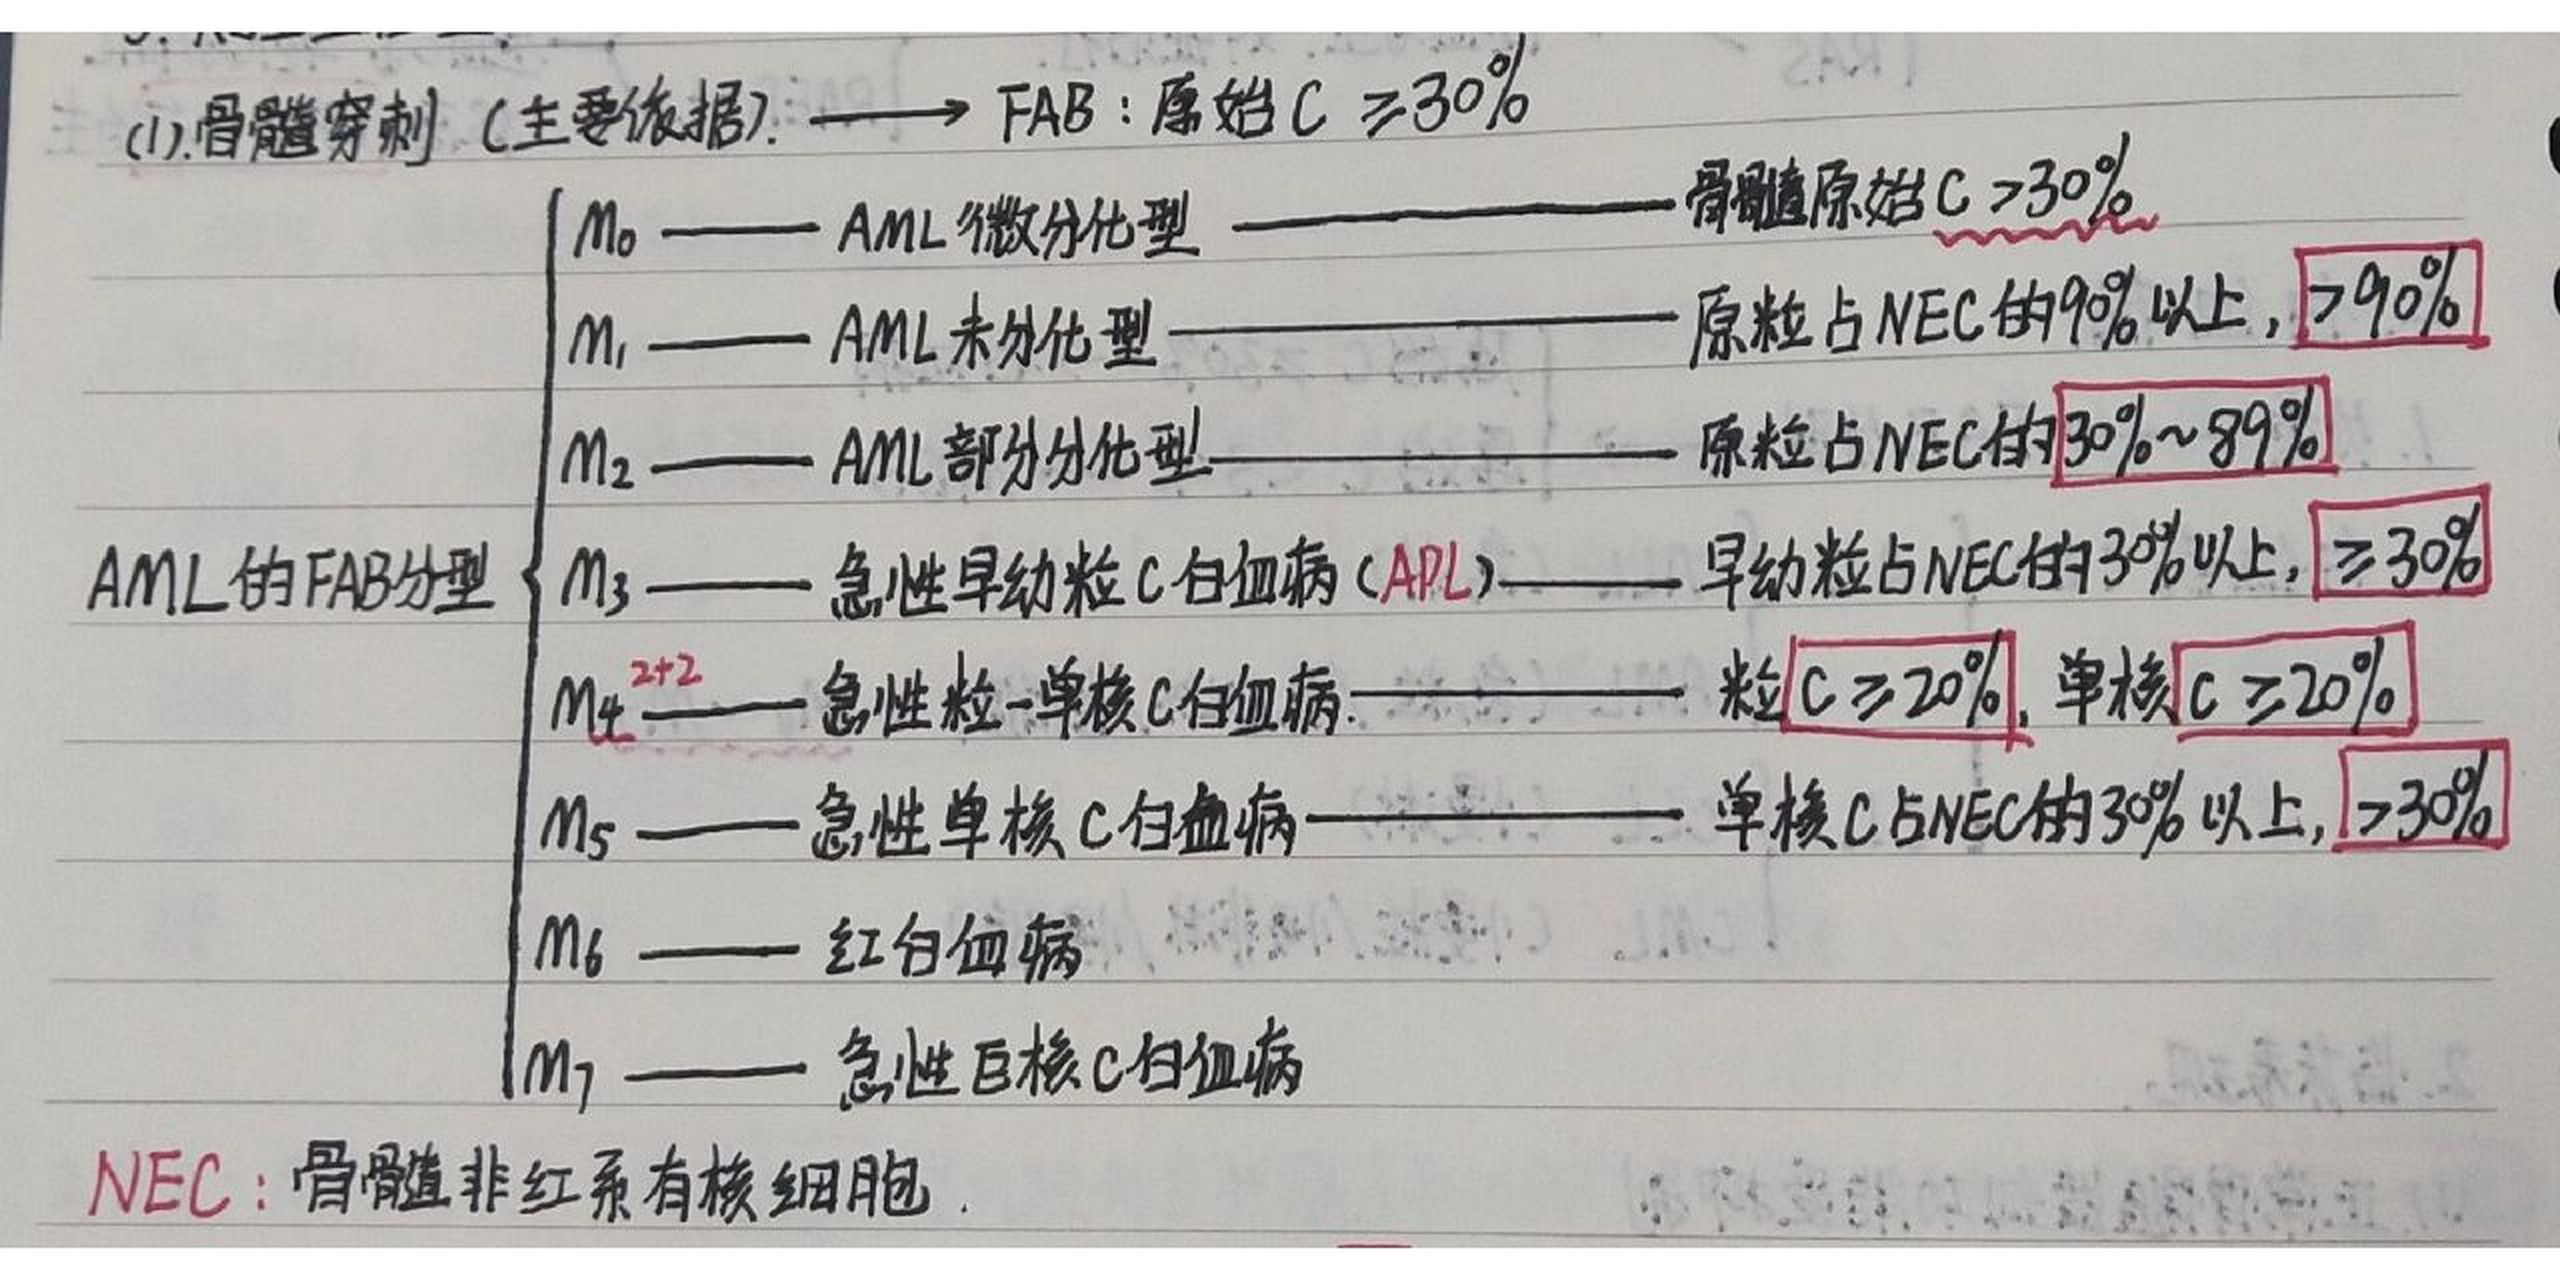 (1).骨髓穿刺 (主要依据). → FAB：原始C ≥30%
M0 —— AML微分化型 —— 骨髓原始C >30%
M1 —— AML未分化型 —— 原粒占NEC的90%以上, >90%
M2 —— AML部分分化型 —— 原粒占NEC的30%~89%
AML的FAB分型 { M3 —— 急性早幼粒C白血病 (APL) —— 早幼粒占NEC的30%以上, ≥30%
2+2
M4 —— 急性粒-单核C白血病. —— 粒C ≥20%, 单核C ≥20%
M5 —— 急性单核C白血病 —— 单核C占NEC的30%以上, >30%
M6 —— 红白血病
M7 —— 急性巨核C白血病
NEC：骨髓非红系有核细胞.